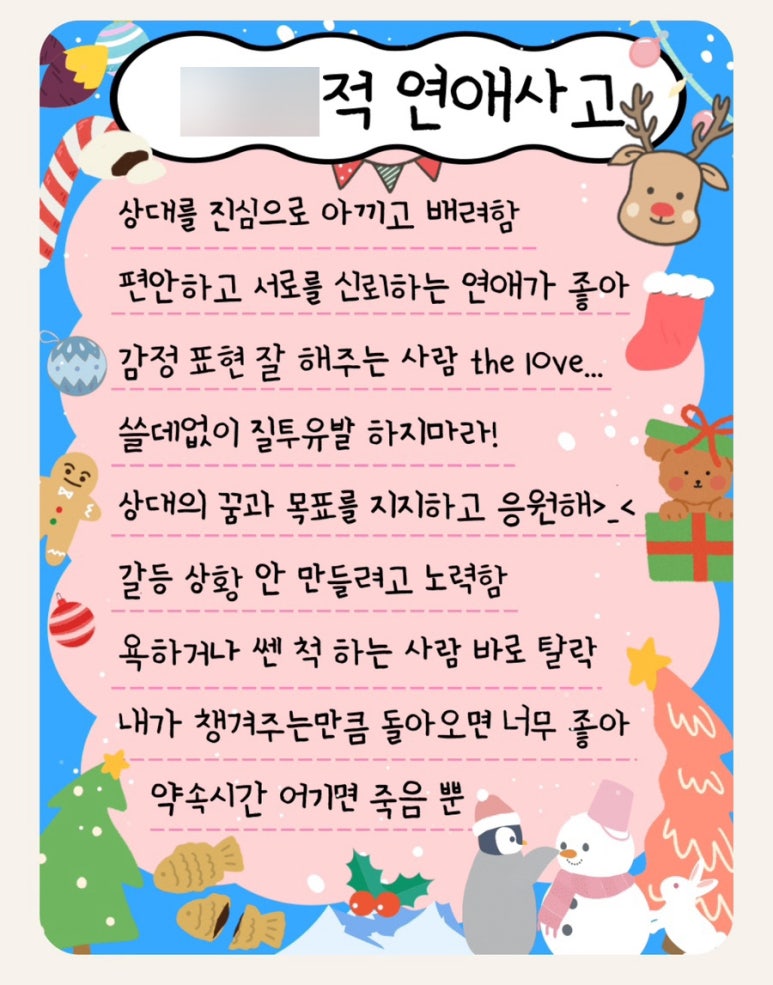 적 연애사고
상대를 진심으로 아끼고 배려함
편안하고 서로를 신뢰하는 연애가 좋아
감정 표현 잘 해주는 사람 the love...
쓸데없이 질투유발 하지마라!
상대의 꿈과 목표를 지지하고 응원해>_<
갈등 상황 안 만들려고 노력함
욕하거나 쎈 척 하는 사람 바로 탈락
내가 챙겨주는만큼 돌아오면 너무 좋아
약속시간 어기면 죽음 뿐